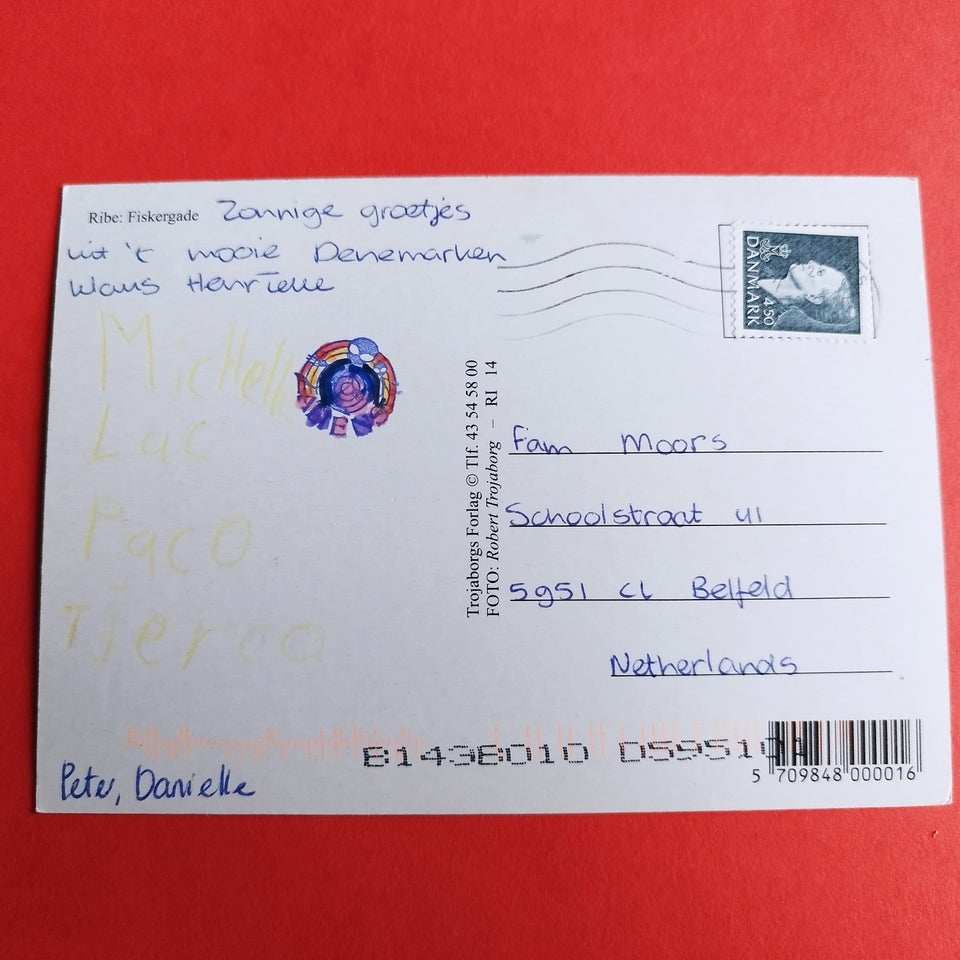 Ribe: Fiskergade Zonnige groetjes
uit 't mooie Denemarken
Wous Henrieke
Michelle
Luc
Paco
Tjerco
Peter, Danielle
Trojaborgs Forlag © Tlf. 43 54 58 00
FOTO: Robert Trojaborg – RI 14
DANMARK
4.50
Fam Moors
Schoolstraat 41
5951 CL Belfeld
Netherlands
B143B010 D59510
5 709848 000016